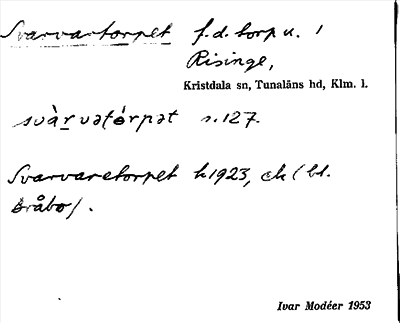 Svarvartorpet f.d. torp u. 1
Risinge,
Kristdala sn, Tunaläns hd, Klm. l.
svàrvatórpət s. 127.
Svarvaretorpet h 1923, ek (bl.
Bråbo).
Ivar Modéer 1953